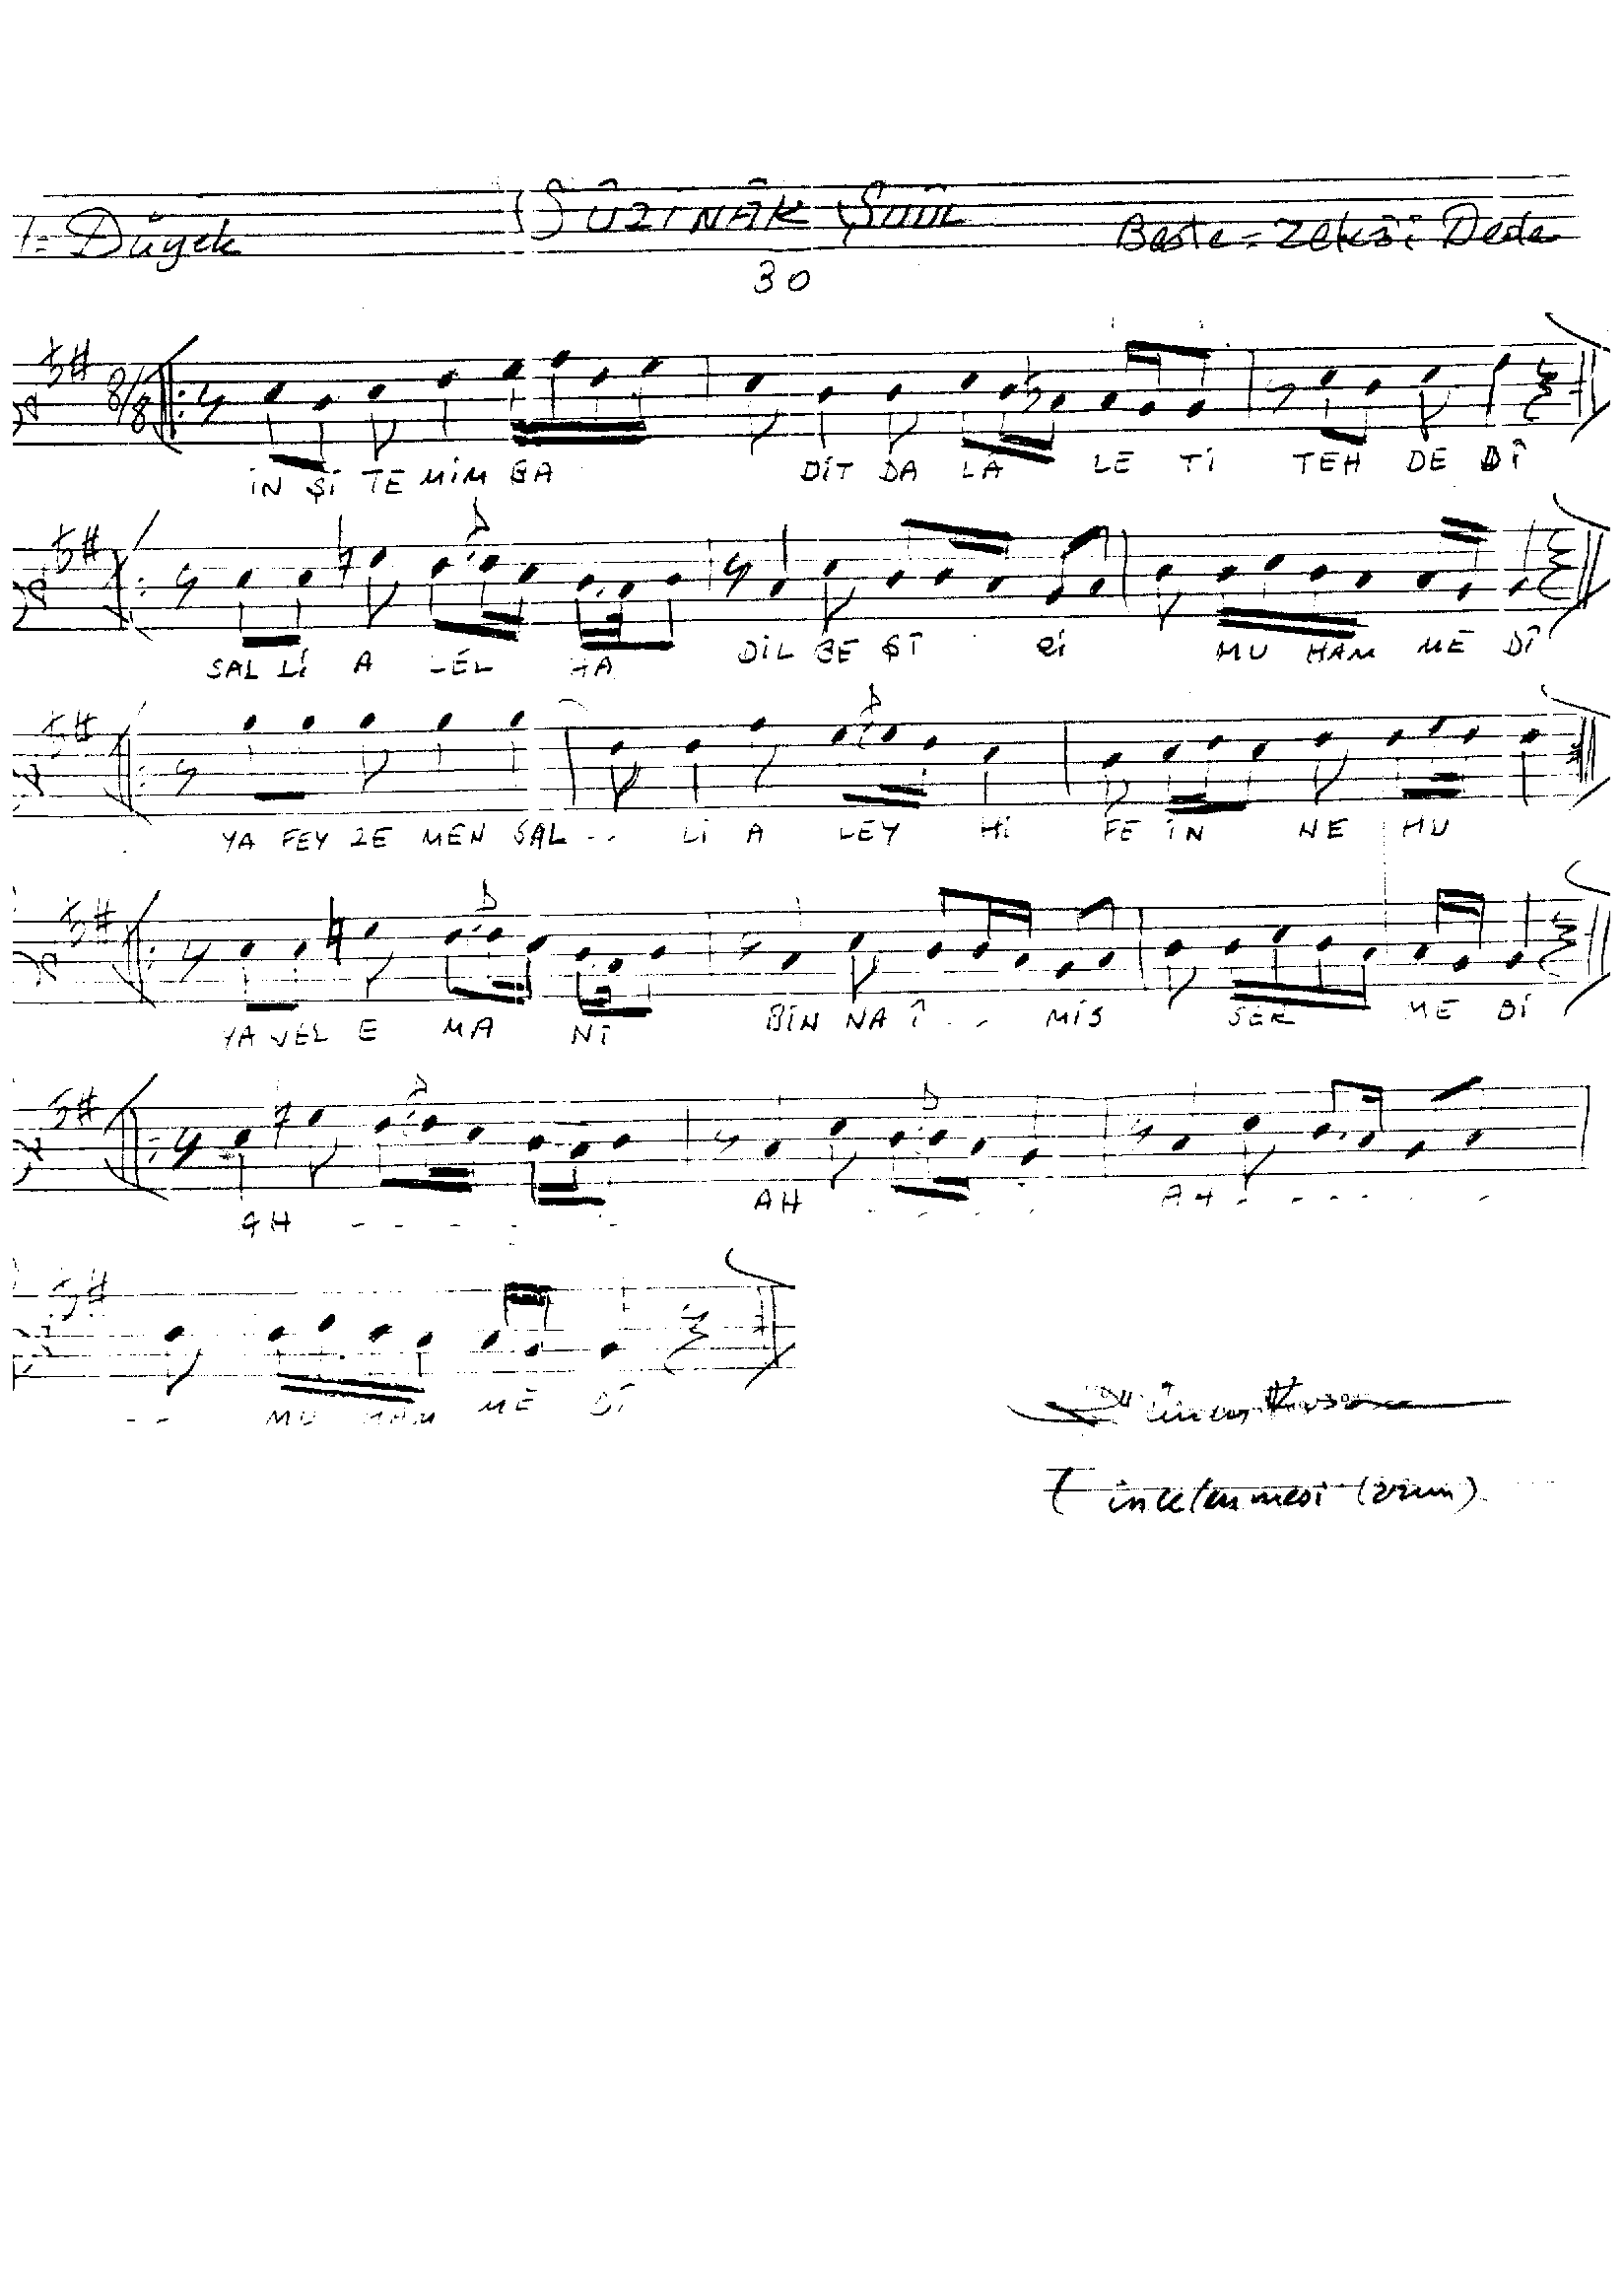 Düyek SÛZİNÂK ŞUÛL Beste = Zekâi Dede
30
8/8
İN Şİ TE MİM BA DİT DA LA LE Tİ TEH DE DÎ
SAL Lİ A LEL HA DİL BE ŞÎ Rİ MU HAM ME DÎ
YA FEY ZE MEN SAL -- Lİ A LEY Hİ FE İN NE HU
YA VEL E MA NÎ BİN NA Î -- MİS SER ME DÎ
AH - - - - - AH - - - - AH - - - - - -
-- MU HAM ME DÎ
incelenmesi